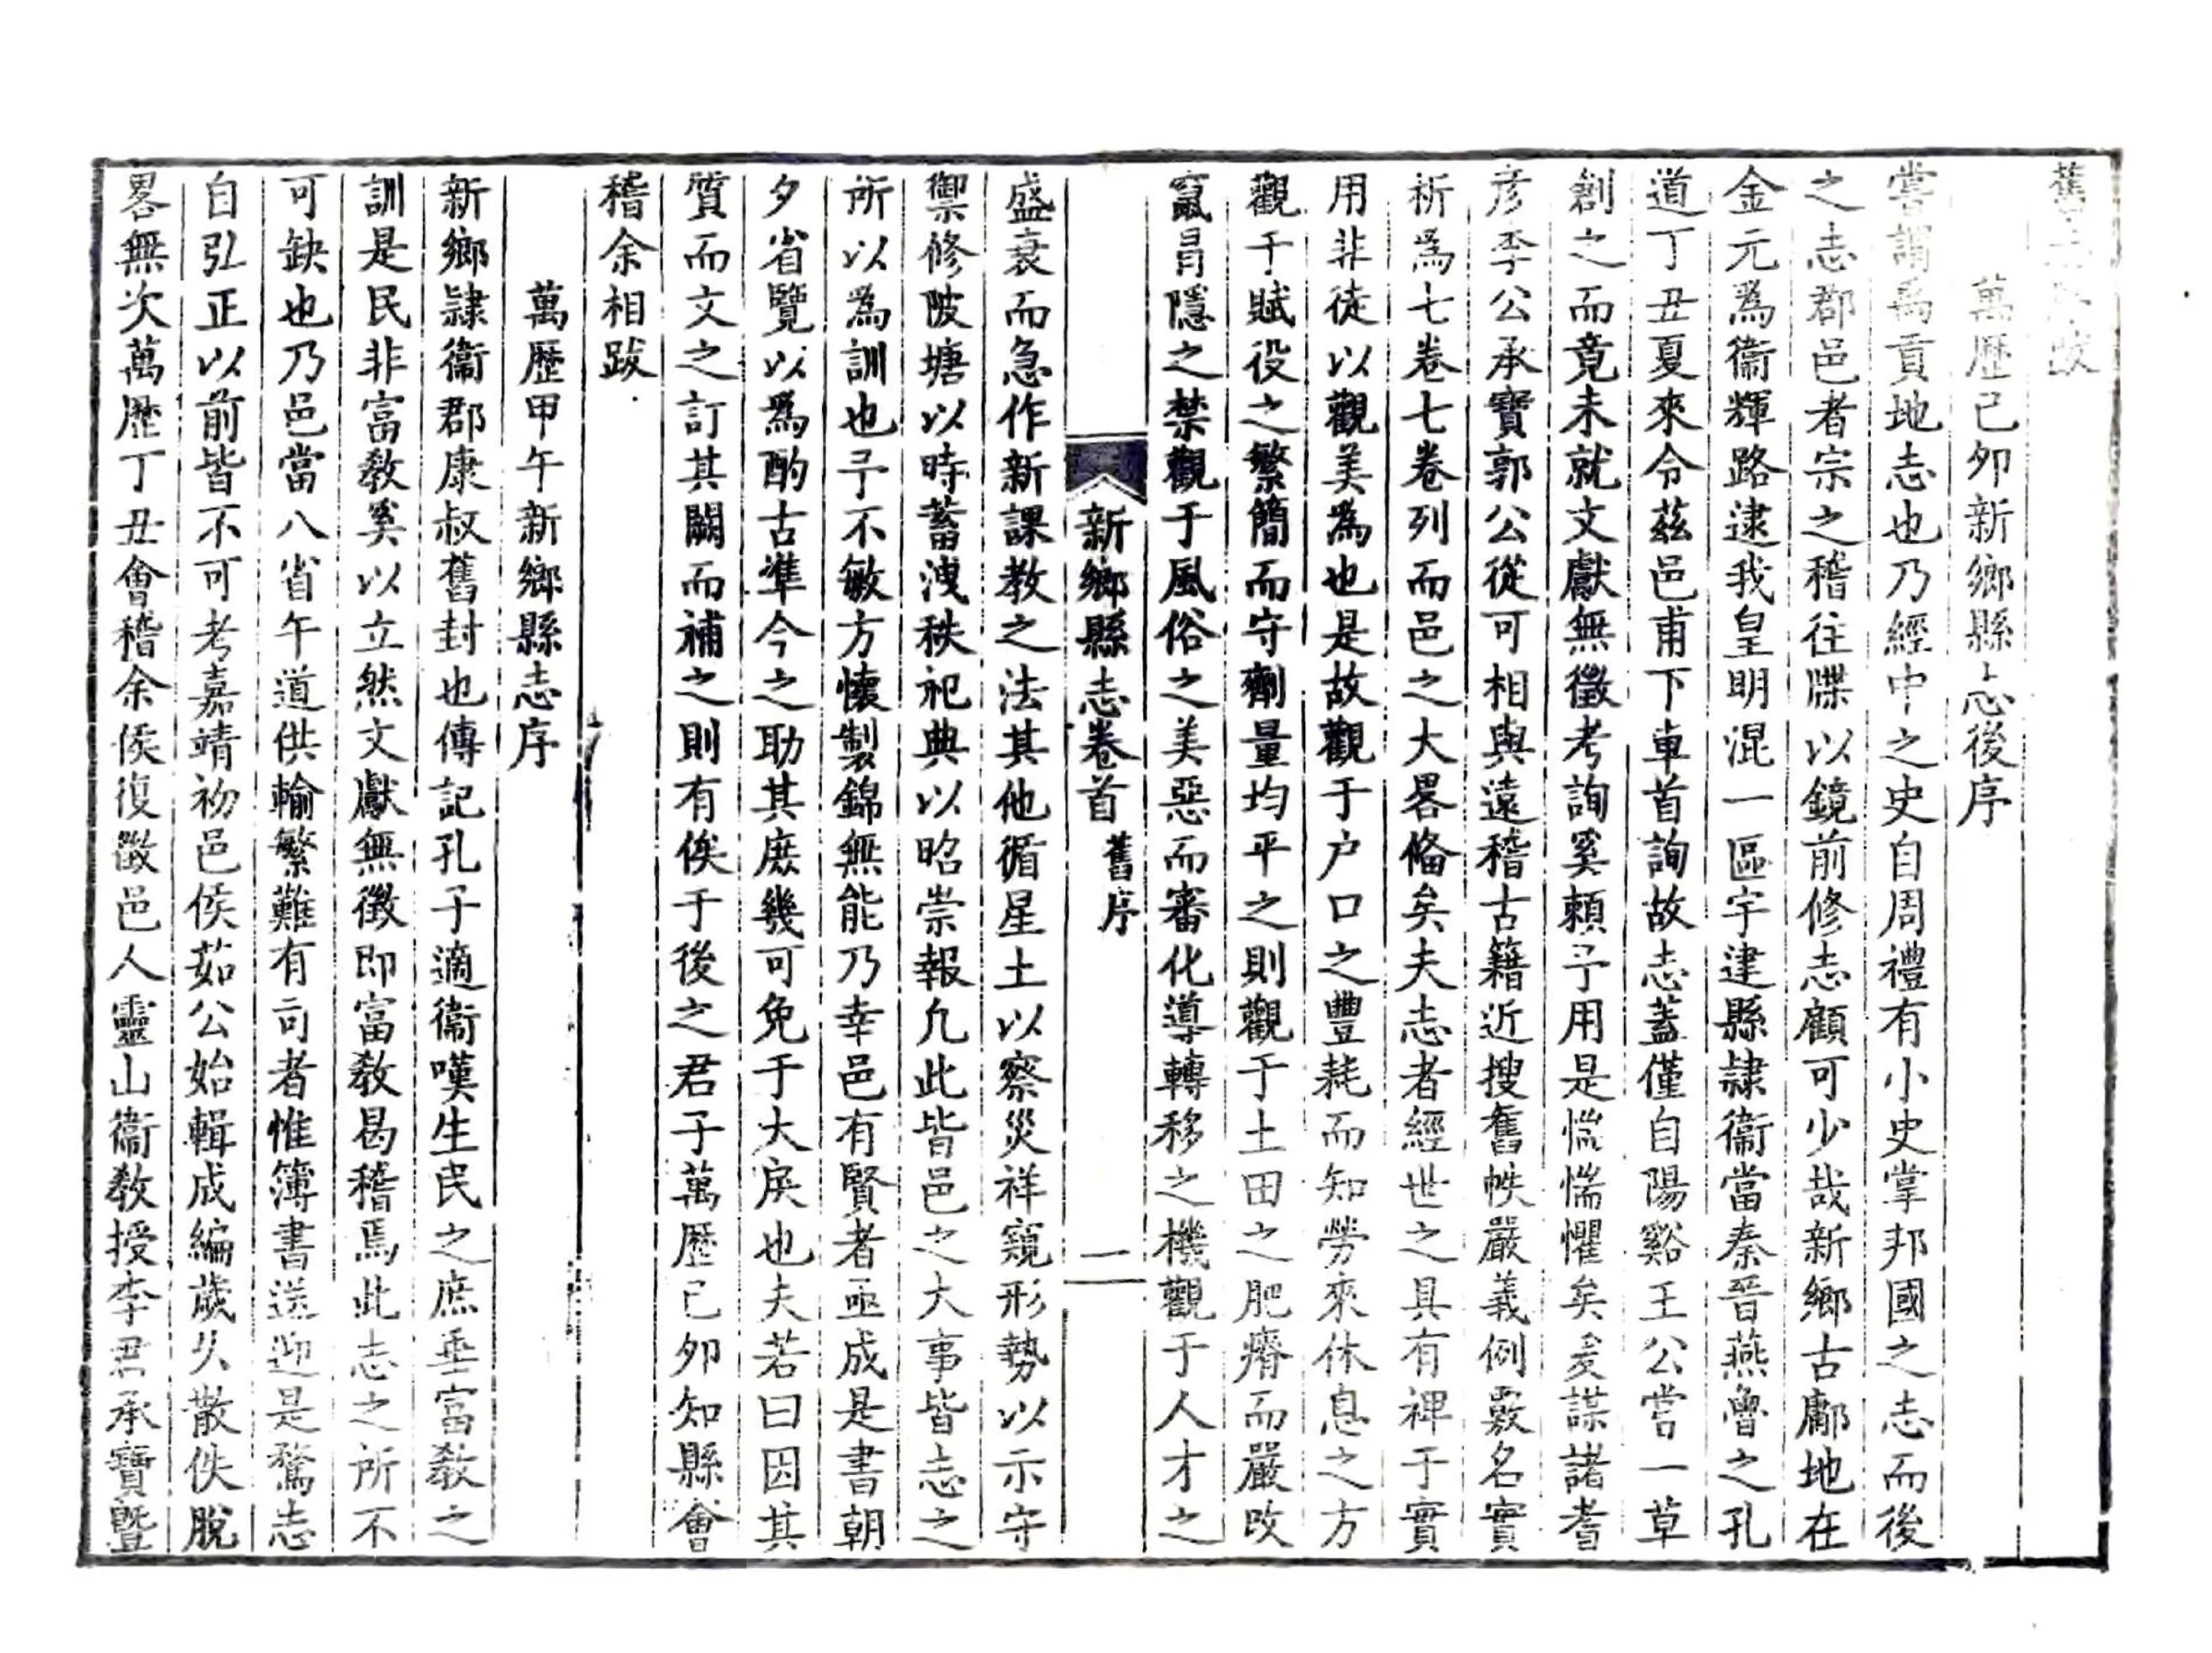 舊志序跋
萬歷己卯新鄉縣志後序
嘗謂禹貢地志也乃經中之史自周禮有小史掌邦國之志而後
之志郡邑者宗之稽往牒以鏡前修志顧可少哉新鄉古鄘地在
金元為衞輝路逮我皇明混一區宇建縣隷衞當秦晉燕魯之孔
道丁丑夏來令茲邑甫下車首詢故志蓋僅自陽谿王公嘗一草
創之而竟未就文獻無徵考詢奚賴予用是惴惴懼矣爰謀諸耆
彦李公承寶郭公從可相與遠稽古籍近搜舊帙嚴義例覈名實
析為七卷七卷列而邑之大畧俻矣夫志者經世之具有裨于實
用非徒以觀美為也是故觀于户口之豐耗而知勞來休息之方
觀于賦役之繁簡而守劑量均平之則觀于土田之肥瘠而嚴改
竄冐隱之禁觀于風俗之美惡而審化導轉移之機觀于人才之
新鄉縣志卷首 舊序 一
盛衰而急作新課教之法其他循星土以察災祥窺形勢以示守
禦修陂塘以時蓄洩秩祀典以昭崇報凢此皆邑之大事皆志之
所以為訓也予不敏方懐製錦無能乃幸邑有賢者亟成是書朝
夕省覽以為酌古凖今之助其庶幾可免于大戾也夫若曰因其
質而文之訂其闕而補之則有俟于後之君子萬歷己卯知縣會
稽余相跋
萬歷甲午新鄉縣志序
新鄉隷衞郡康叔舊封也傳記孔子適衞嘆生民之庶垂富敎之
訓是民非富敎奚以立然文獻無徵即富敎曷稽焉此志之所不
可缺也乃邑當八省午道供輸繁難有司者惟簿書送迎是騖志
自弘正以前皆不可考嘉靖初邑侯茹公始輯成編歲久散佚脫
畧無次萬歷丁丑會稽余侯復徵邑人靈山衞敎授李君承寶曁